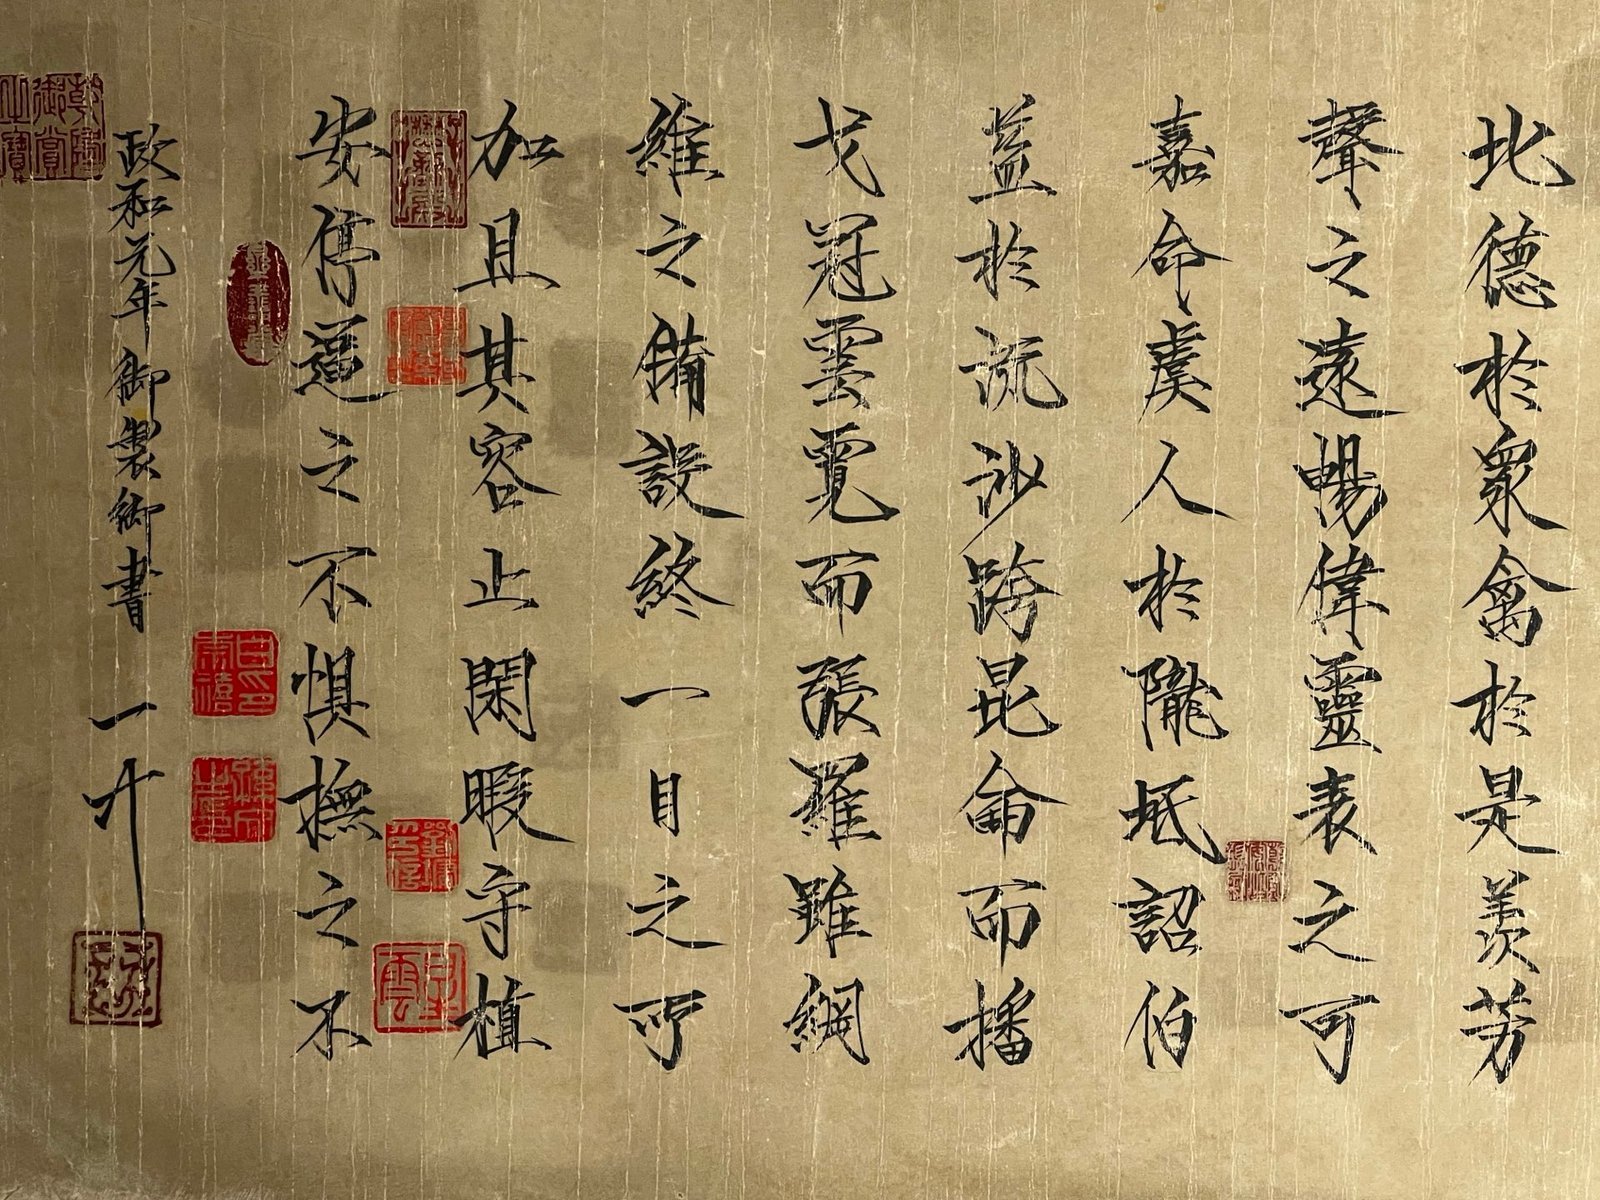 比德於衆禽於是羨芳
聲之遠暢偉靈表之可
嘉命虞人於隴坻詔伯
益於流沙跨昆侖而播
弋冠雲霓而張羅雖網
維之備設終一目之所
加且其容止閑暇守植
安停逼之不懼撫之不
政和元年御製御書
乾隆御賞之寶